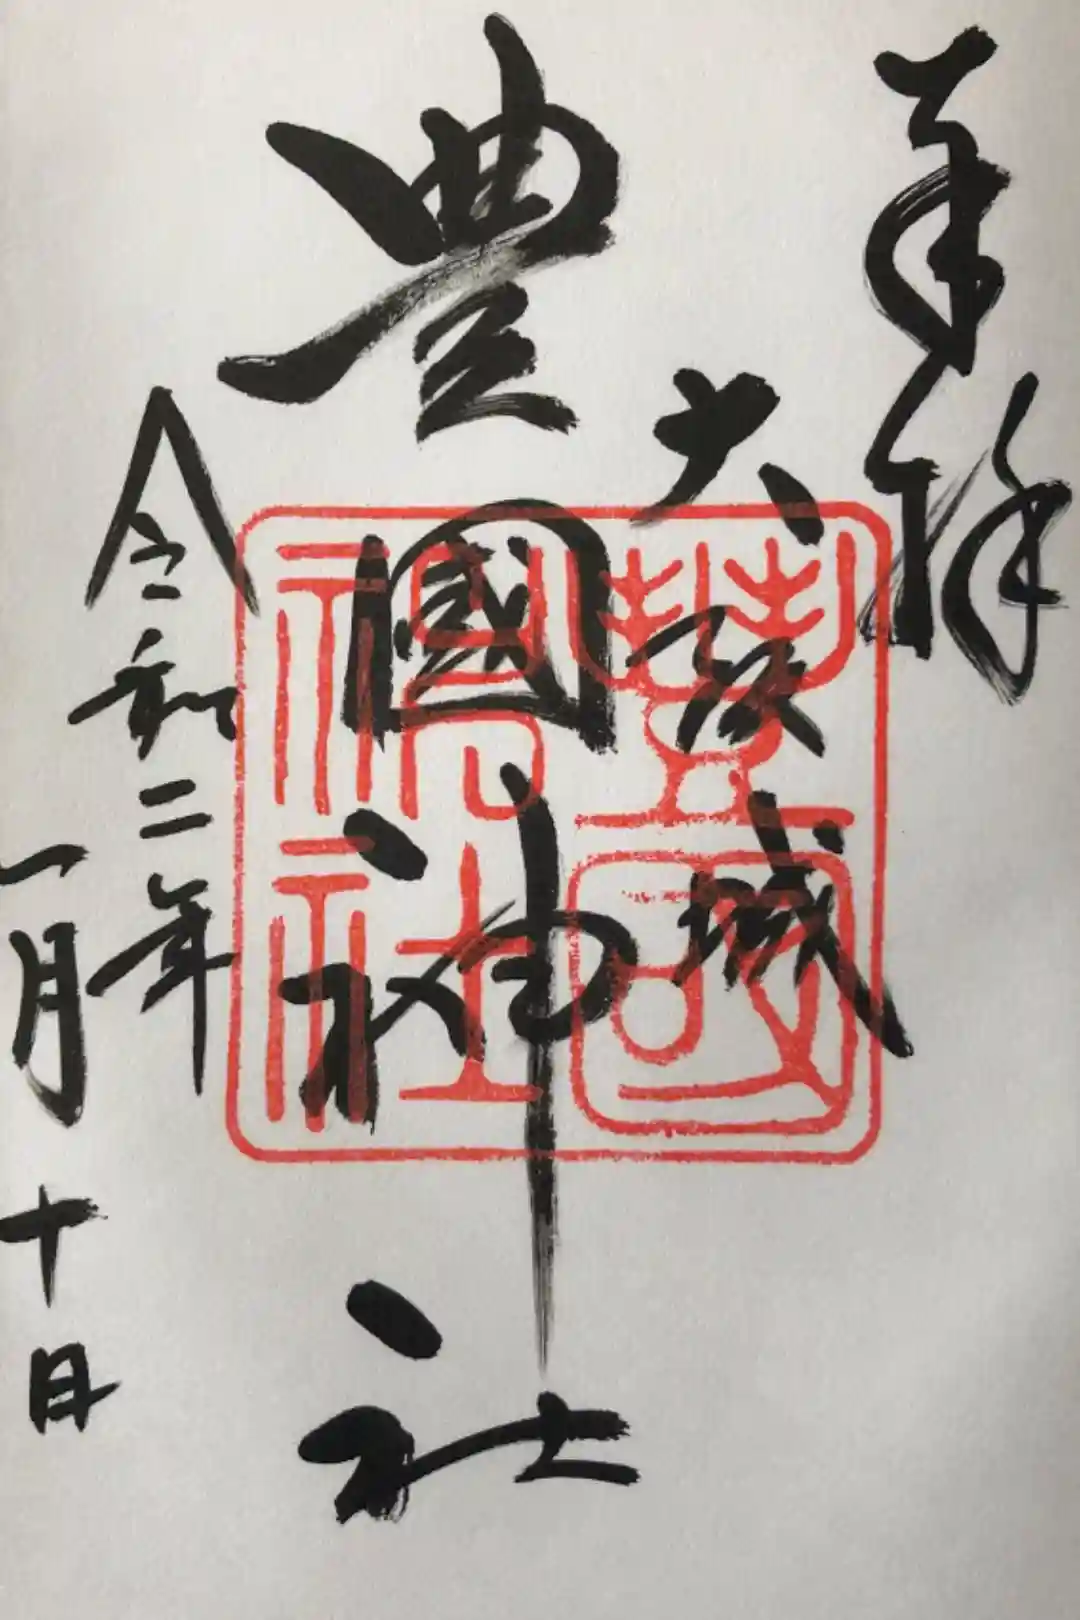 奉拝
大阪城
豊國神社
令和二年
一月十日
豐國
神社